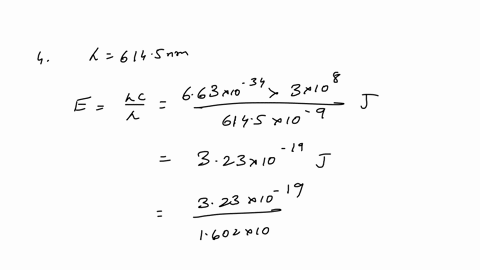 4. λ = 614.5 nm
E = hc/λ = 6.63×10^-34 × 3×10^8 / 614.5×10^-9 J
= 3.23×10^-19 J
= 3.23×10^-19 / 1.602×10